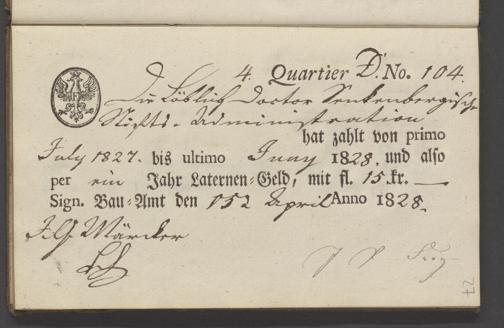 4. Quartier D. No. 104.
Die Löblich Doctor Senkenbergische
Stifts-Administration
hat zahlt von primo
July 1827. bis ultimo Juny 1828. und also
per ein Jahr Laternen-Geld, mit fl. 15. kr. —
Sign. Bau-Amt den 15t April Anno 1828.